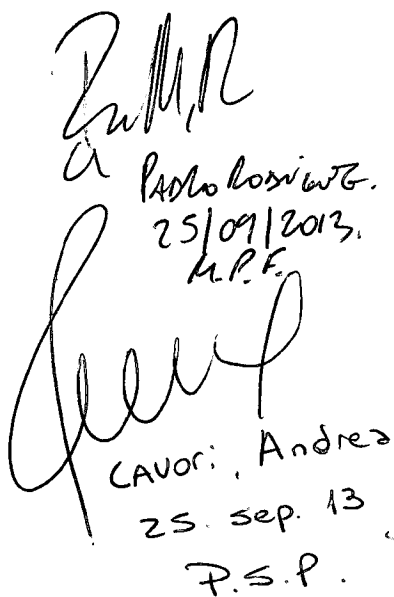 PABLO RODRIGUEZ.
25/09/2013.
M.P.F.
CAVORI, Andrea
25. sep. 13
P.S.P.